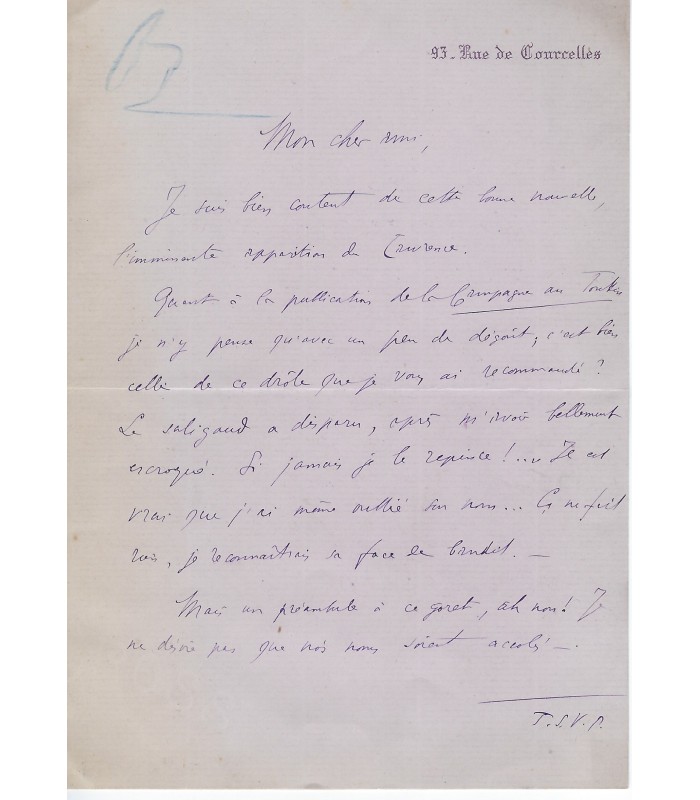 93 - Rue de Courcelles
Mon cher ami,
Je suis bien content de cette bonne nouvelle,
l'imminente apparition du
Quant à la publication de la Campagne au Tonkin
je n'y pense qu'avec un peu de dégoût ; c'est bien
celle de ce drôle que je vous ai recommandé ?
Le saligaud a disparu, après m'avoir bellement
escroqué. Si jamais je le repince !... Il est
vrai que j'ai même oublié son nom... Ça ne fait
rien, je reconnaîtrais sa face de bandit. —
Mais un préambule à ce goret, ah non ! Je
ne désire pas que nos noms soient accolés —.
T.S.V.P.